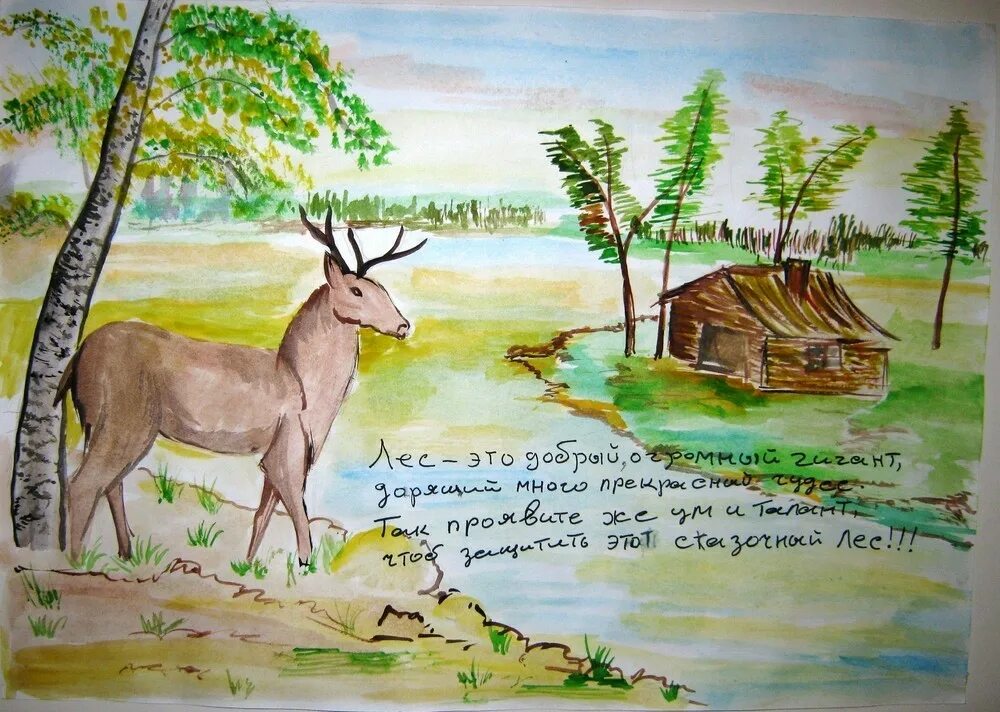 Лес – это добрый, огромный гигант,
дарящий много прекрасный чудес.
Так проявите же ум и талант,
чтоб защитить этот сказочный Лес!!!